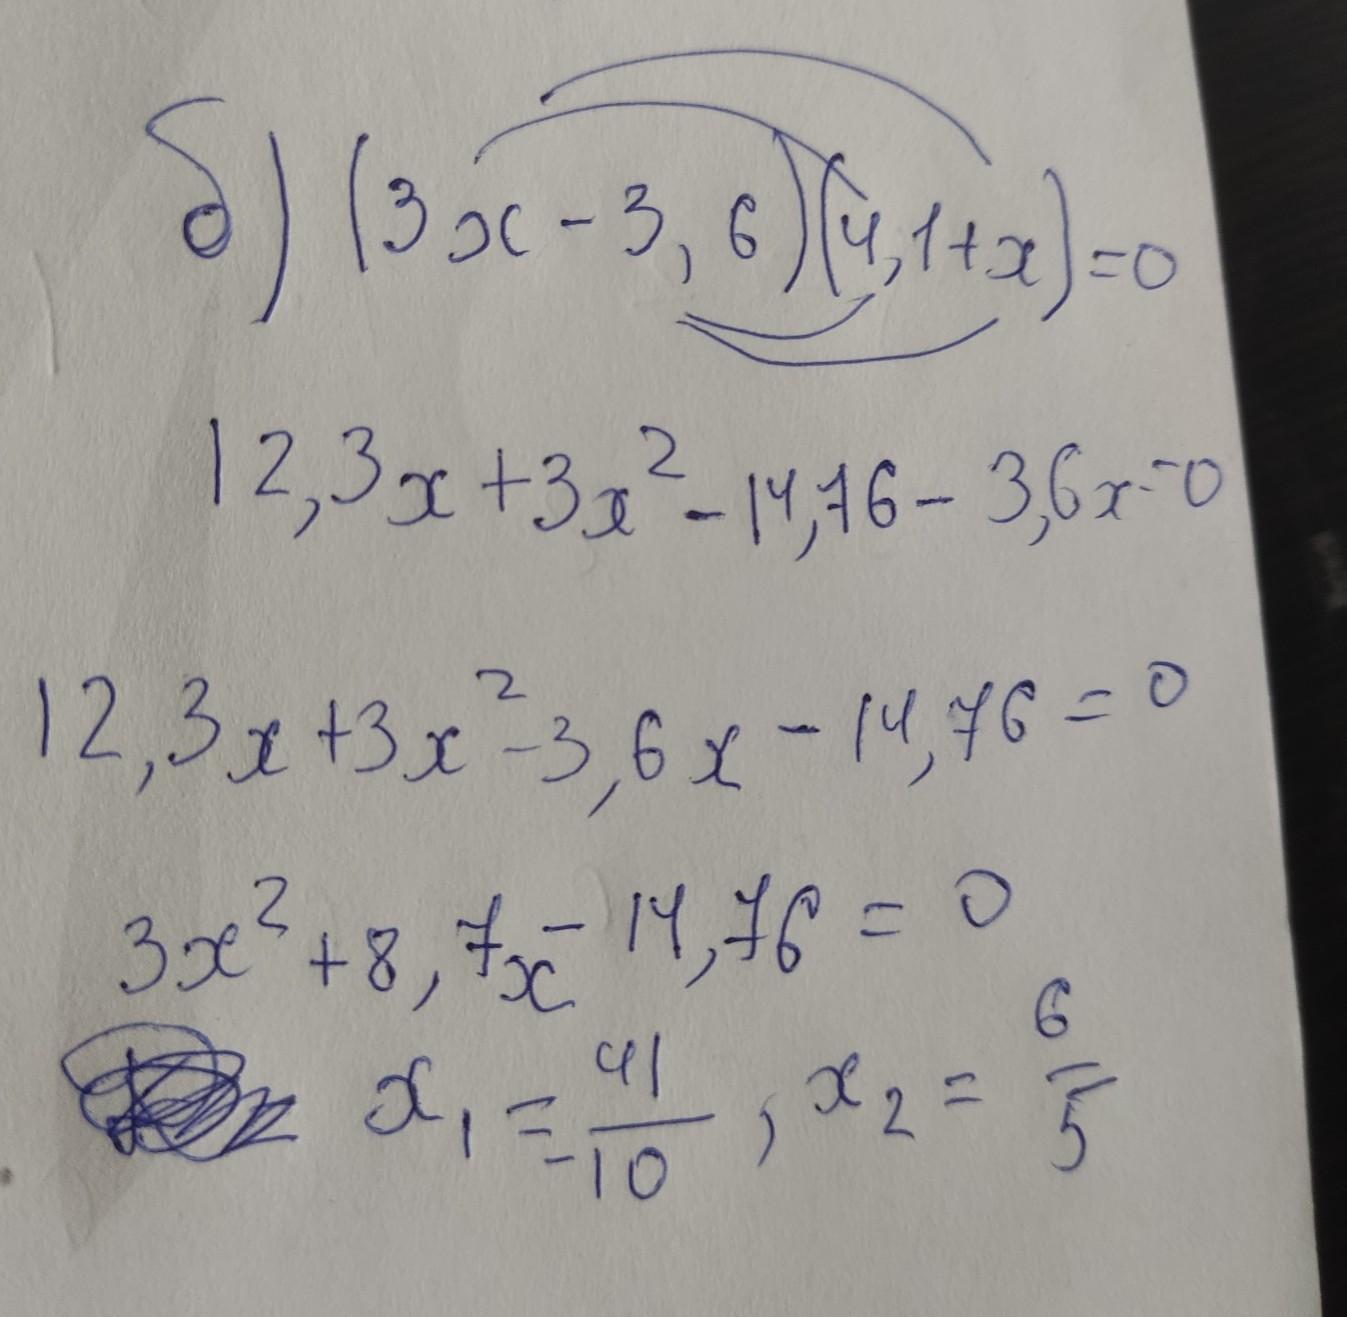 б) (3x-3,6)(4,1+x)=0
12,3x+3x²-14,76-3,6x=0
12,3x+3x²-3,6x-14,76=0
3x²+8,7x-14,76=0
x₁=41/-10, x₂=6/5